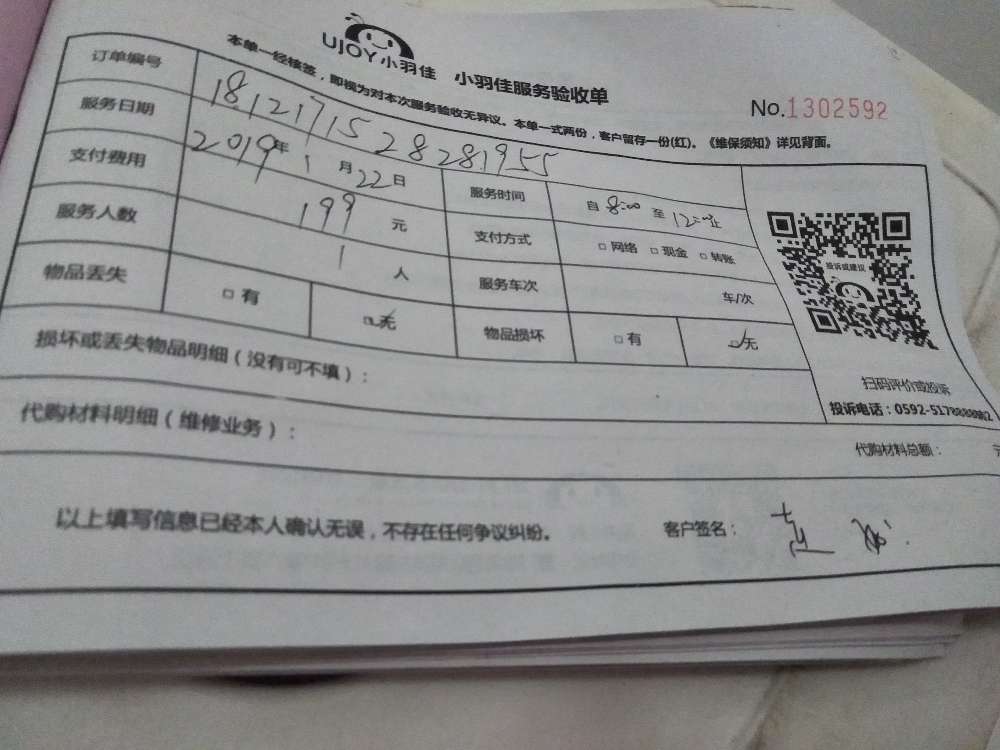 UJOY小羽佳 小羽佳服务验收单
No.1302592
本单一经核签，即视为对本次服务验收无异议。本单一式两份，客户留存一份(红)。《维保须知》详见背面。
订单编号 1812171528281955
服务日期 2019年1月22日 服务时间 自8:00至12:00止
支付费用 199元 支付方式 □网络 □现金 □转账
服务人数 1人 服务车次 车/次
物品丢失 □有 □无 物品损坏 □有 □无
投诉或建议
扫码评价或投诉
投诉电话：0592-517
损坏或丢失物品明细（没有可不填）：
代购材料明细（维修业务）：
代购材料总额： 元
以上填写信息已经本人确认无误，不存在任何争议纠纷。 客户签名：